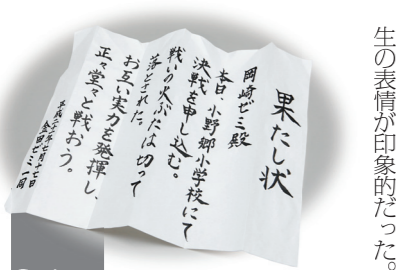 生の表情が印象的だった。
果たし状
岡崎ゼミ殿
本日 小野郷小学校にて
決戦を申し込む。
戦いの火ぶたは切って
落とされた。
お互い実力を発揮し、
正々堂々と戦おう。
平成二十年七月二七日
金田ゼミ一同